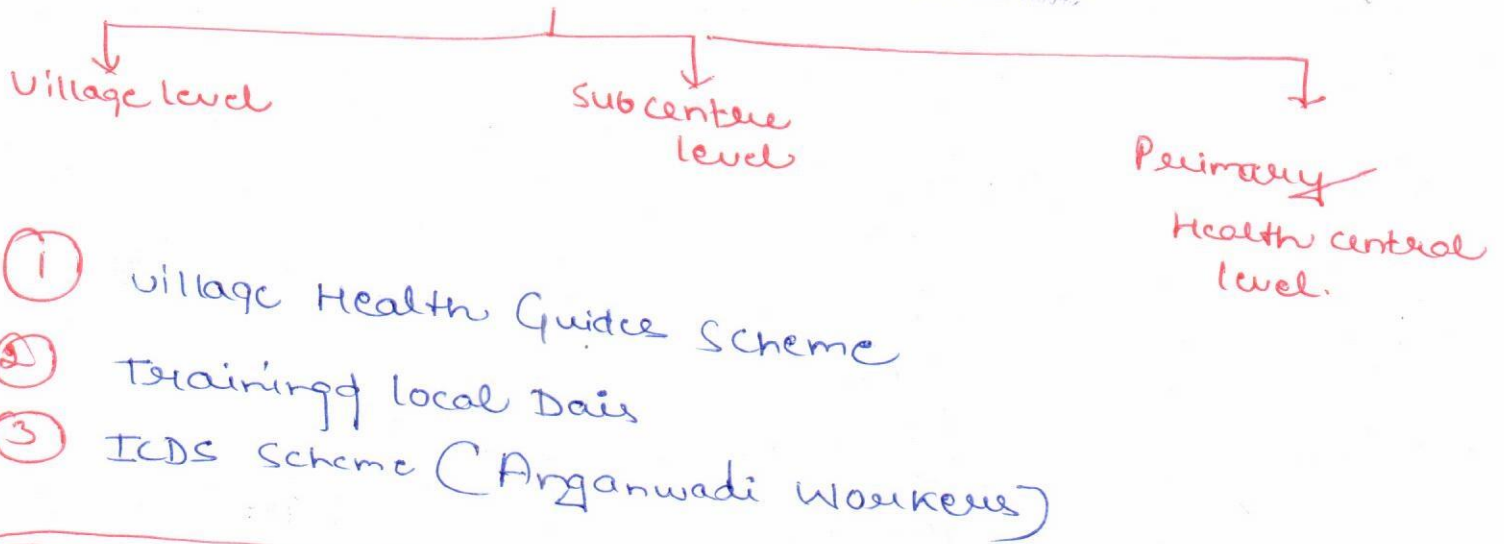 Village level
Subcentre
level
Primary
Health central
level.
① Village Health Guides Scheme
② Training of local Dais
③ ICDS Scheme (Anganwadi Workers)